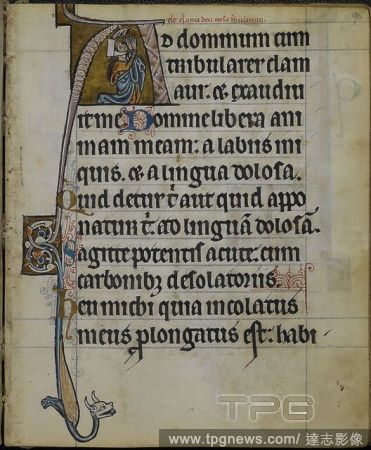 AD dominum cum
tribularer clam
aui: & exaudiu
it me Domine libera ani
mam meam: a labiis ini
quis. & a lingua dolosa.
Quid detur t̄ aut quid appo
natur t̄: ad linguā dolosā.
Sagitte potentis acute: cum
carbonibꝫ desolatoriis.
Heu michi quia incolatus
meus ꝓlongatus est: habi
TPG
www.tpgnews.com / 達志影像